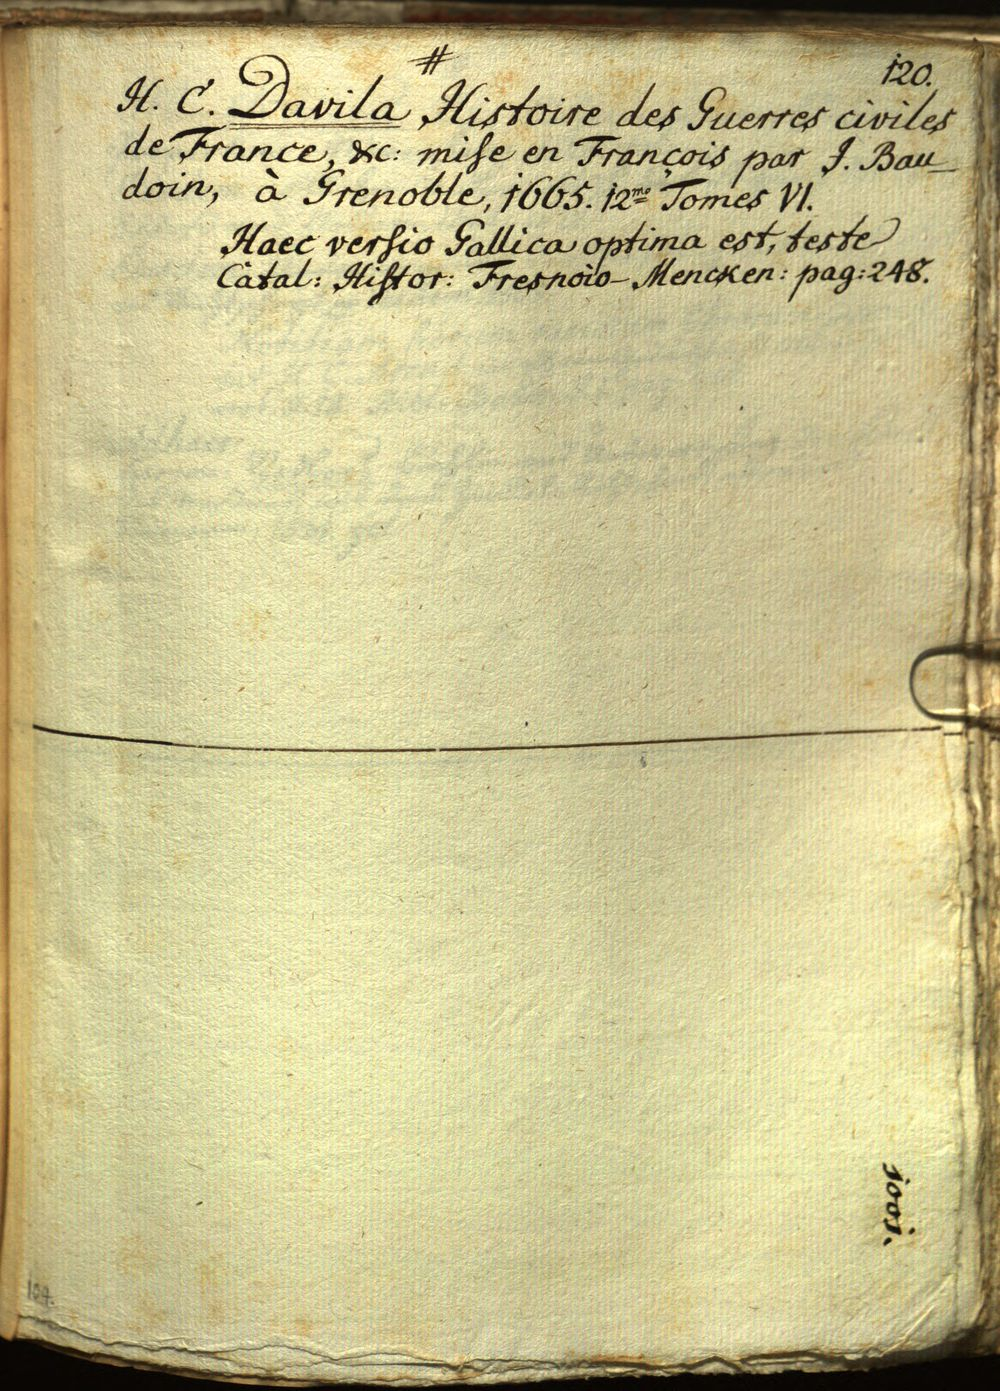 #
120.
H. C. Davila Histoire des Guerres civiles
de France, &c: miſe en François par J. Bau-
doin, à Grenoble, 1665. 12mo Tomes VI.
Haec verſio Gallica optima est, teste
Catal: Hiſtor: Fresnoio-Mencken: pag: 248.
1001.
104.